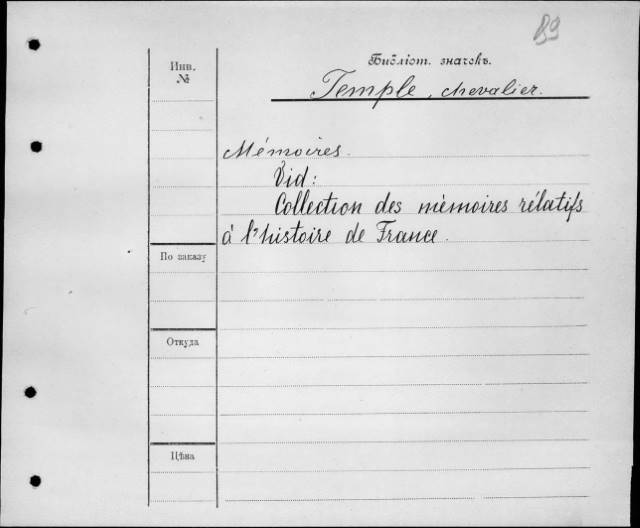 89
Инв.
№
Библіот. значекъ.
Temple, chevalier.
Mémoires.
Vid:
Collection des mèmoires rélatifs
à l'histoire de France.
По заказу
Откуда
Цѣна